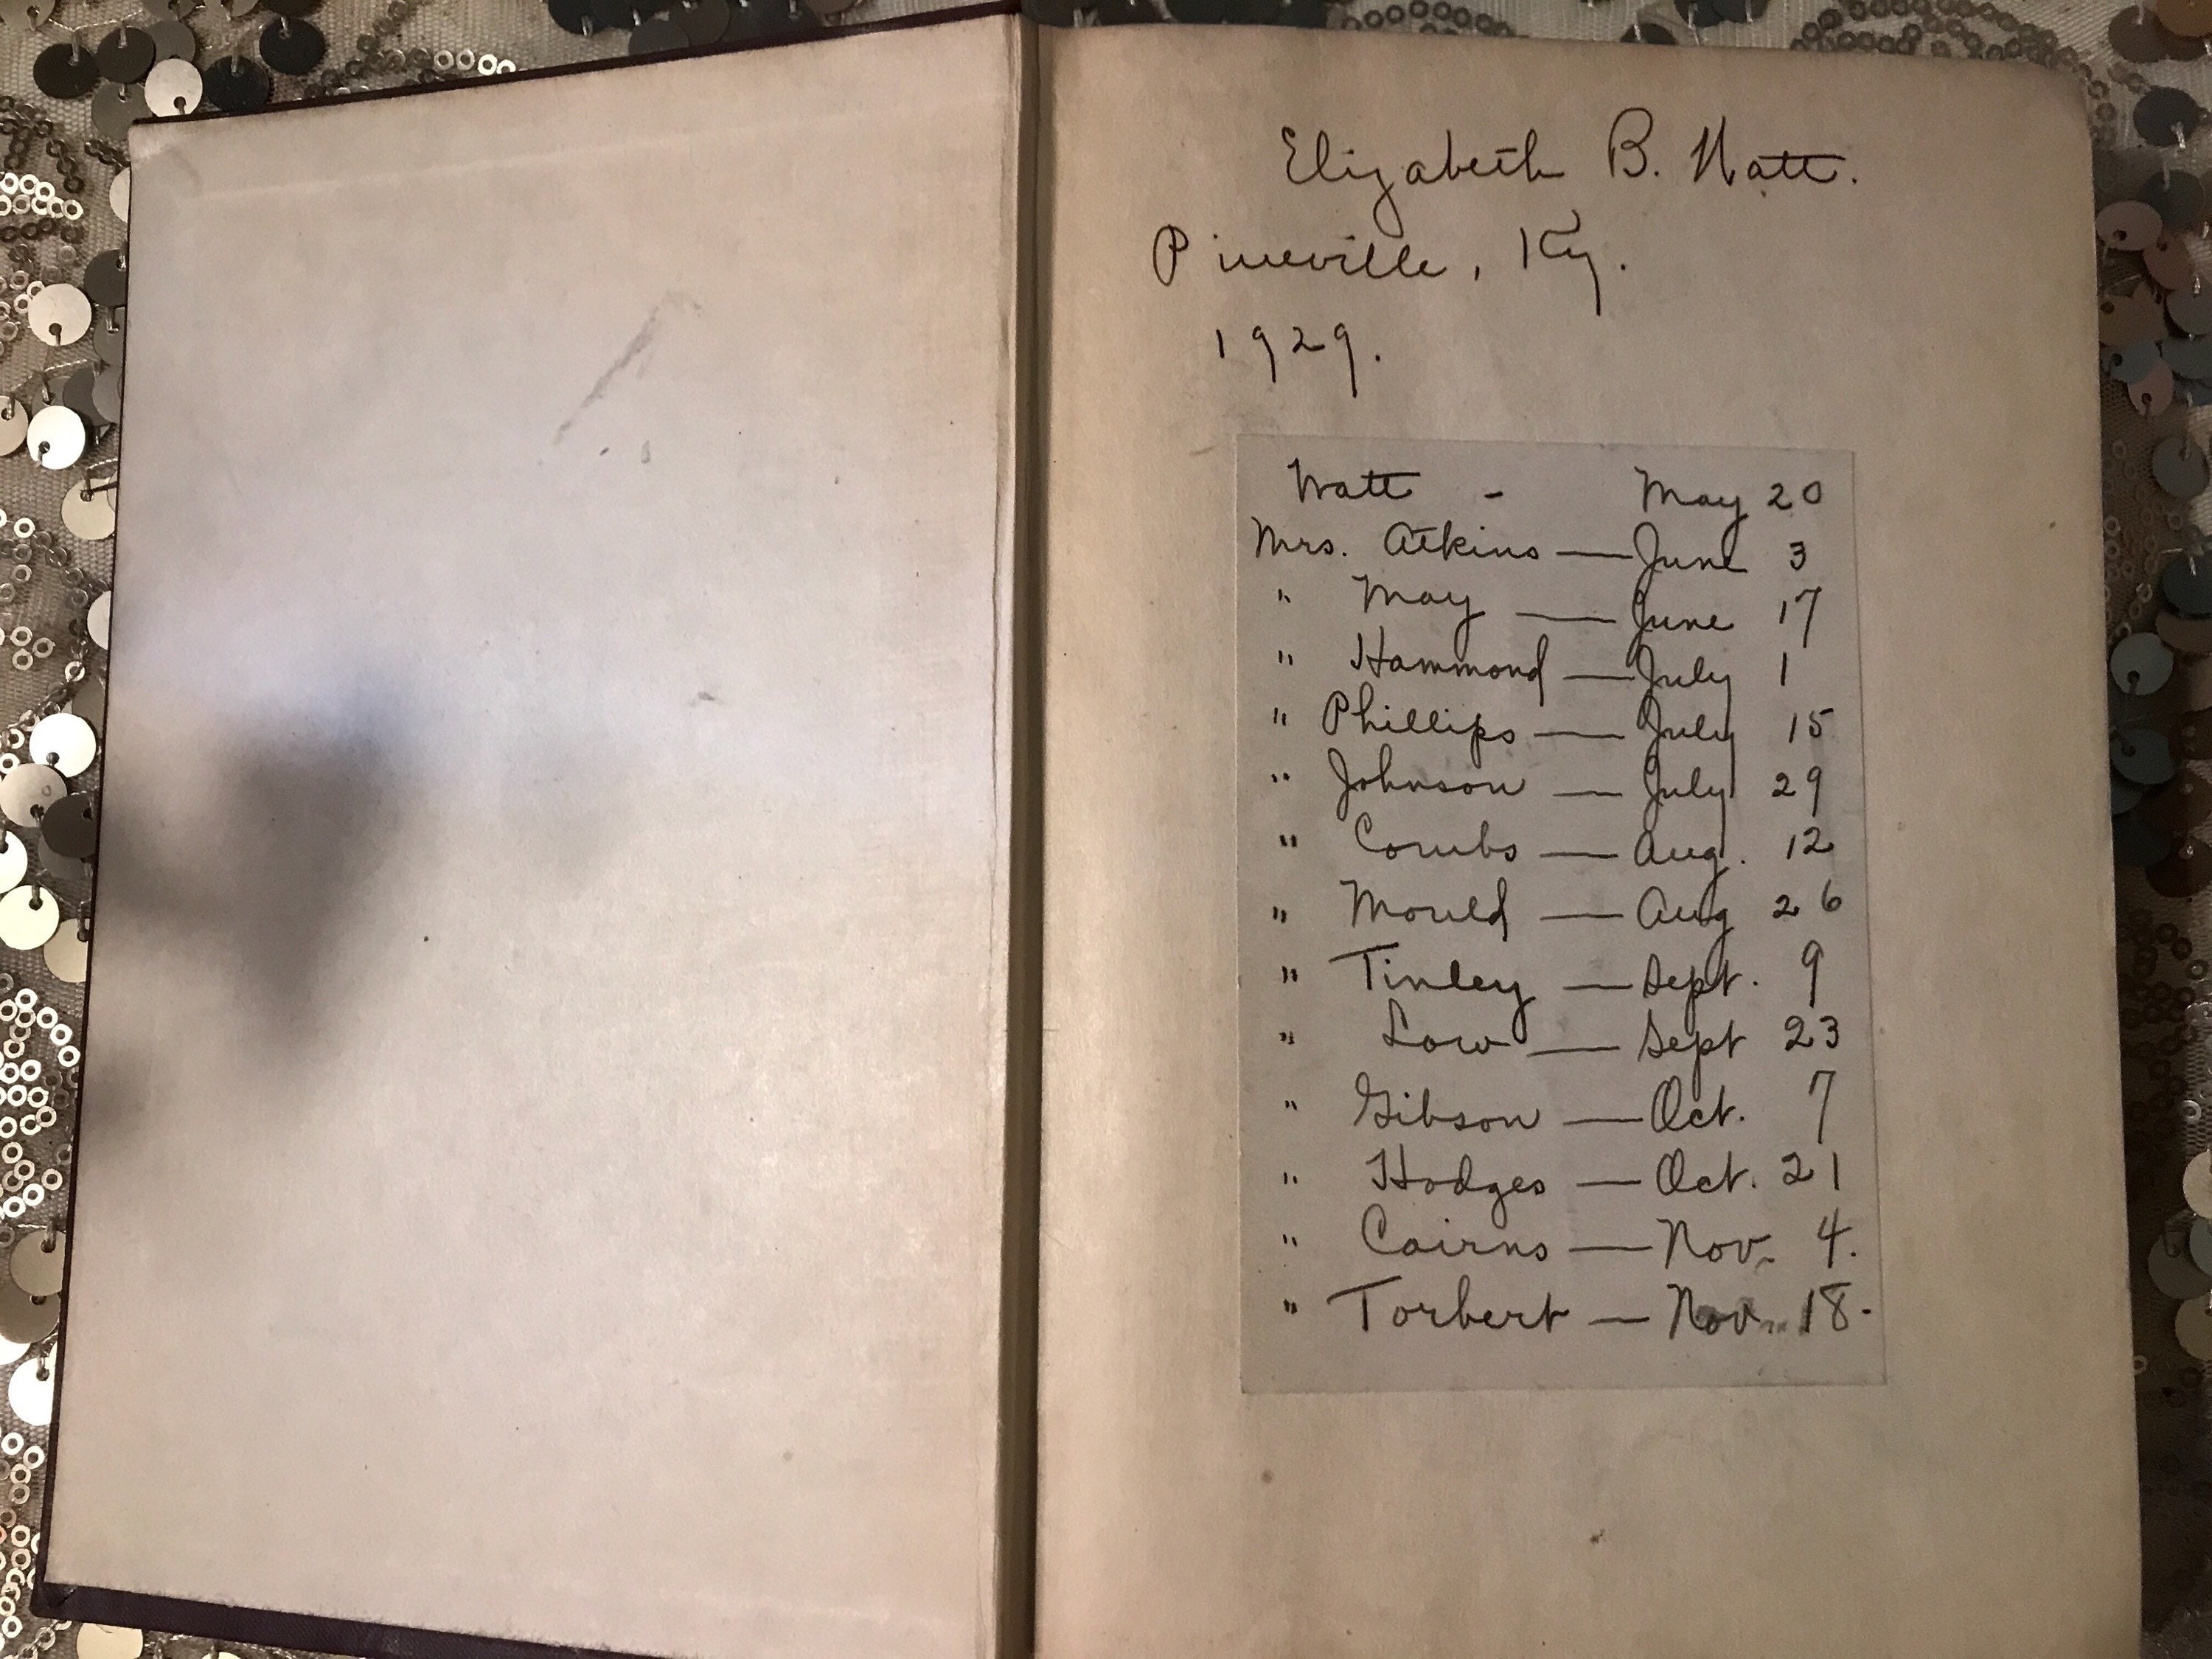 Elizabeth B. Watt.
Pineville, Ky.
1929.
Watt - May 20
Mrs. Atkins — June 3
" May — June 17
" Hammond — July 1
" Phillips — July 15
" Johnson — July 29
" Combs — Aug. 12
" Mould — Aug 26
" Tinley — Sept. 9
" Low — Sept 23
" Gibson — Oct. 7
" Hodges — Oct. 21
" Cairns — Nov. 4.
" Torbert — Nov. 18.